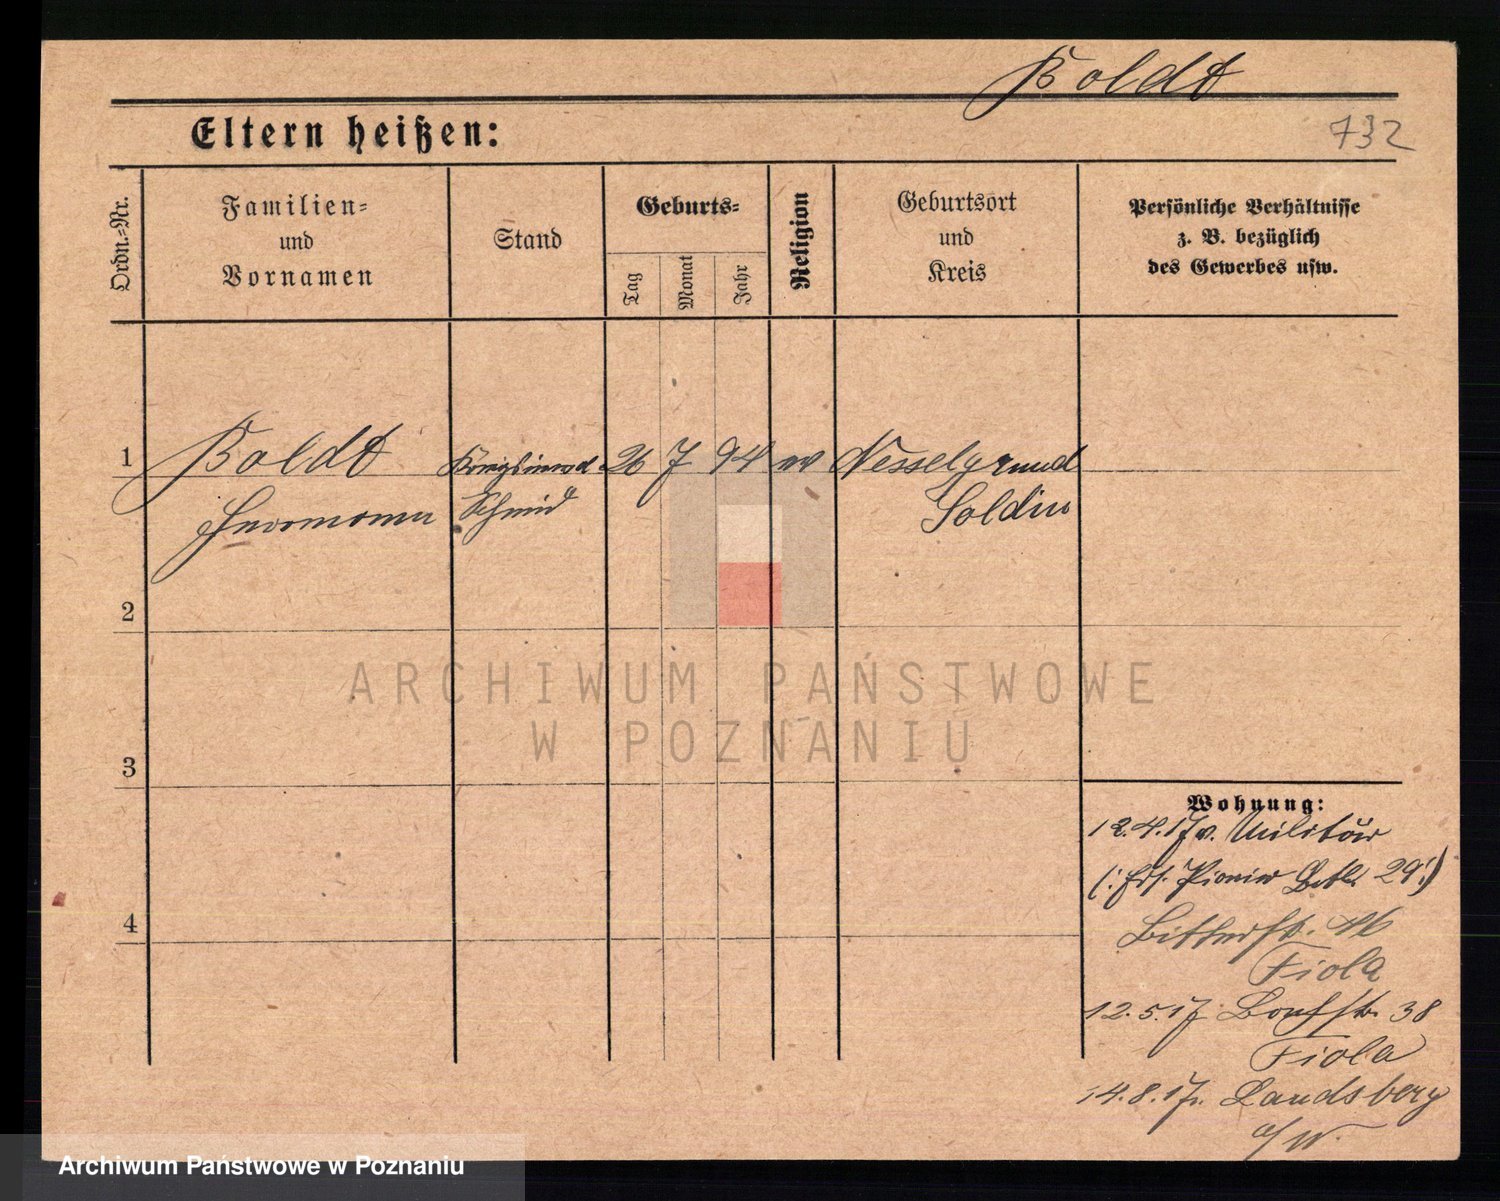 Boldt
732
Eltern heißen:
Ordn.-Nr.
Familien-
und
Vornamen
Stand
Geburts-
Tag
Monat
Jahr
Religion
Geburtsort
und
Kreis
Persönliche Verhältnisse
z. B. bezüglich
des Gewerbes usw.
1 Boldt 26 7 94 ev Nesselgrund
Hermann Schmied Soldin
2
3
4
Wohnung:
12.4.17 v. Militär
(: Ers. Pionier Batl. 29 :)
Bitterstr.
Fiola
12.5.17 38
Fiola
14.8.17. Landsberg
a/W.
ARCHIWUM PAŃSTWOWE
W POZNANIU
Archiwum Państwowe w Poznaniu